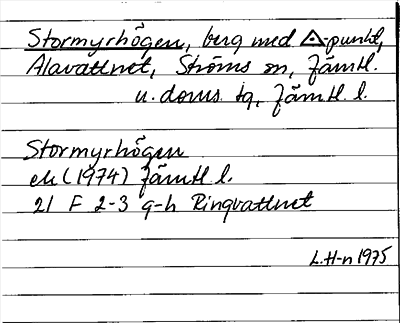 Stormyrhögen, berg med △-punkt,
Alavattnet, Ströms sn, Jämtl.
u. doms tg, Jämtl. l.
Stormyrhögen
ek (1974) Jämtl l.
21 F 2-3 g-h Ringvattnet
L.H-n 1975